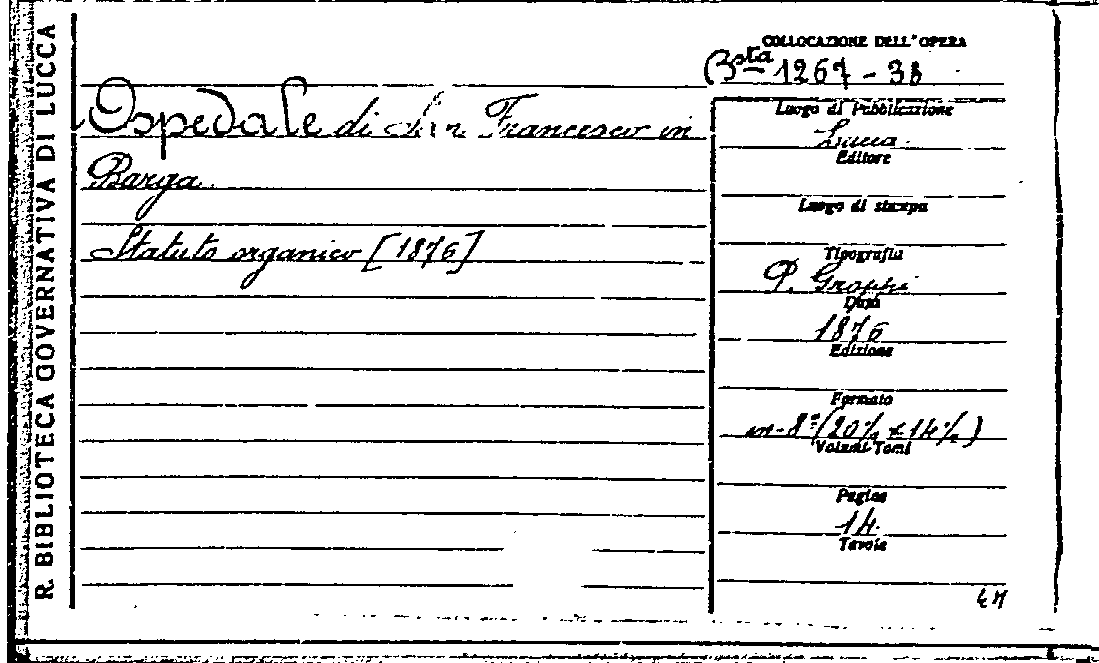 R. BIBLIOTECA GOVERNATIVA DI LUCCA
COLLOCAZIONE DELL'OPERA
Bsta 1267 - 38
Ospedale di San Francesco in
Barga
Statuto organico [1876]
Luogo di Pubblicazione
Lucca
Editore
Luogo di stampa
Tipografia
P. Grophi
Data
1876
Edizione
Formato
in-8° (20½ x 14½)
Volumi-Tomi
Pagine
14
Tavole